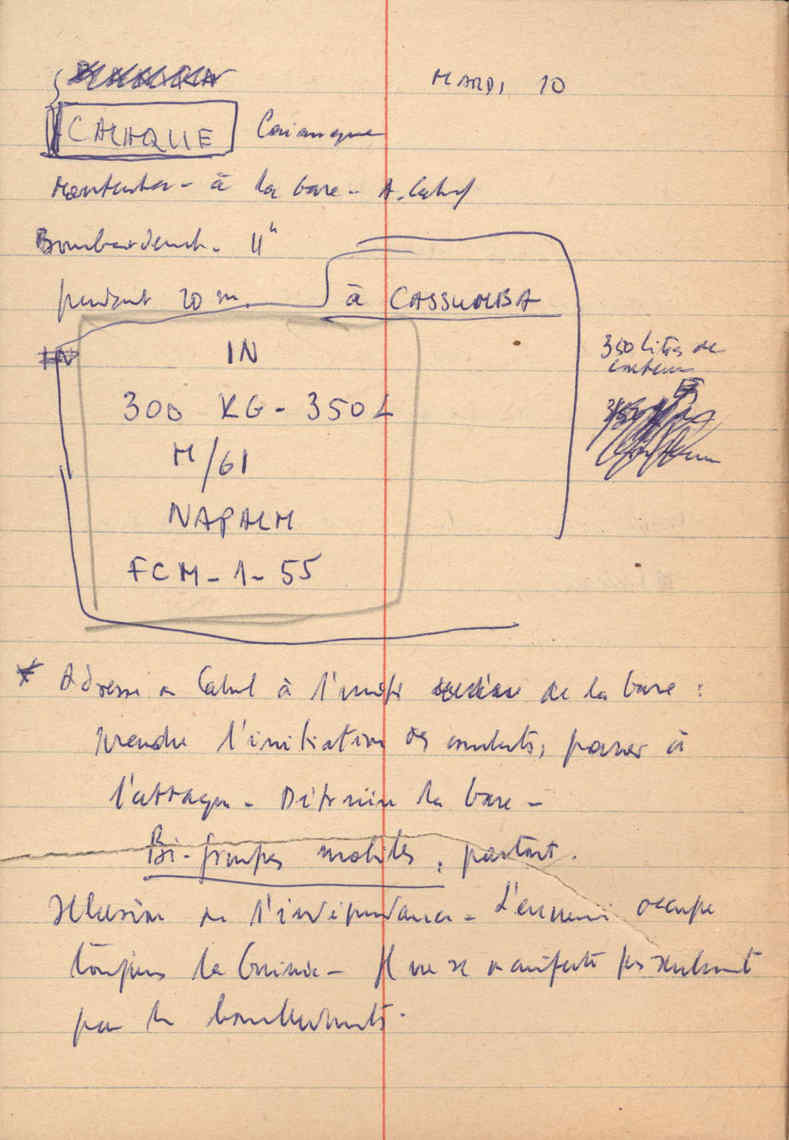 MARDI 10
CAIAQUE Caianque
à la base - A. Cabral
Bombardement. 11h
pendant 20 m. à CASSUMBA
IN
350 litres de
300 KG - 350 L
M/61
NAPALM
FCM - 1 - 55
* Adresse de Cabral à l'unité de la base :
prendre l'initiative des combats, passer à
l'attaque - Détruire la base -
Bi-groupes mobiles, partout.
Illusion de l'indépendance - L'ennemi occupe
toujours la Guinée - Il ne se manifeste pas seulement
par les bombardements.